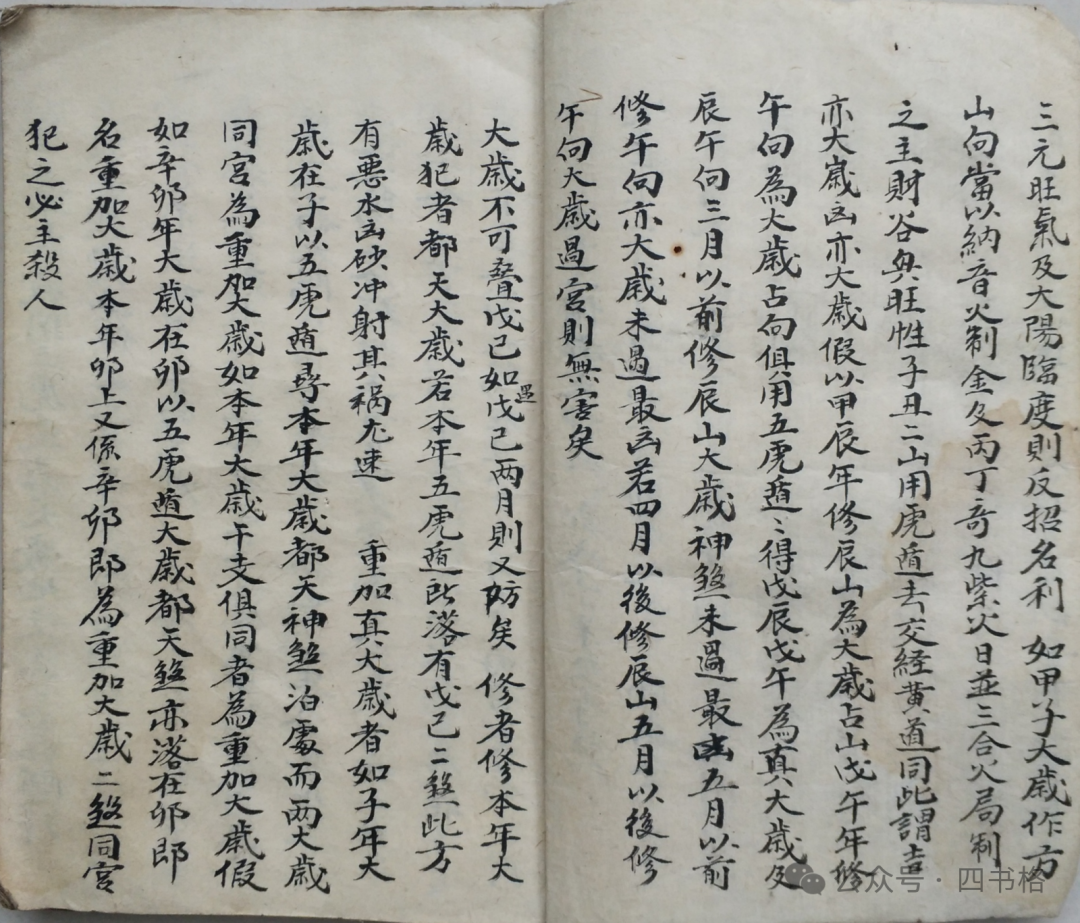 三元旺氣及大陽臨度則反招名利　如甲子大歲作方
山向當以納音火制金及丙丁奇九紫火日並三合火局制
之主財谷興旺牲子丑二山用虎遁去交経黄道同此謂吉
亦大歲凶亦大歲假以甲辰年修辰山為大歲占山戊午年修
午向為大歲占向俱用五虎遁〻得戊辰戊午為真大歲及
辰午向三月以前修辰山大歲神煞未過最凶五月以前
修午向亦大歲未過最凶若四月以後修辰山五月以後修
午向大歲過宮則無害矣
大歲不可疊戊己如遇戊己兩月則又妨矣　修者修本年大
歲犯者都天大歲若本年五虎遁所落有戊己二煞此方
有悪水凶砂冲射其禍尤速　重加真大歲者如子年大
歲在子以五虎遁尋本年大歲都天神煞泊處而兩大歲
同宮為重加大歲如本年大歲干支俱同者為重加大歲假
如辛卯年大歲在卯以五虎遁大歲都天煞亦落在卯即
名重加大歲本年卯上又係辛卯即為重加大歲二煞同宮
犯之必主殺人
公众号·四书格